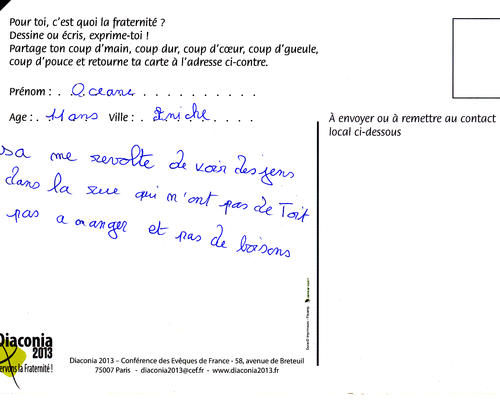 Pour toi, c'est quoi la fraternité ?
Dessine ou écris, exprime-toi !
Partage ton coup d'main, coup dur, coup d'cœur, coup d'gueule,
coup d'pouce et retourne ta carte à l'adresse ci-contre.
Prénom : . Oceane . . . . . . . . . .
Age : . 11 ans Ville : . Eniche . . . .
À envoyer ou à remettre au contact
local ci-dessous
sa me revolte de voir des jens
dans la rue qui m'ont pas de Toit
pas a manger et pas de boisons
Diaconia
2013
ervons la Fraternité !
Diaconia 2013 – Conférence des Evêques de France - 58, avenue de Breteuil
75007 Paris - diaconia2013@cef.fr - www.diaconia2013.fr